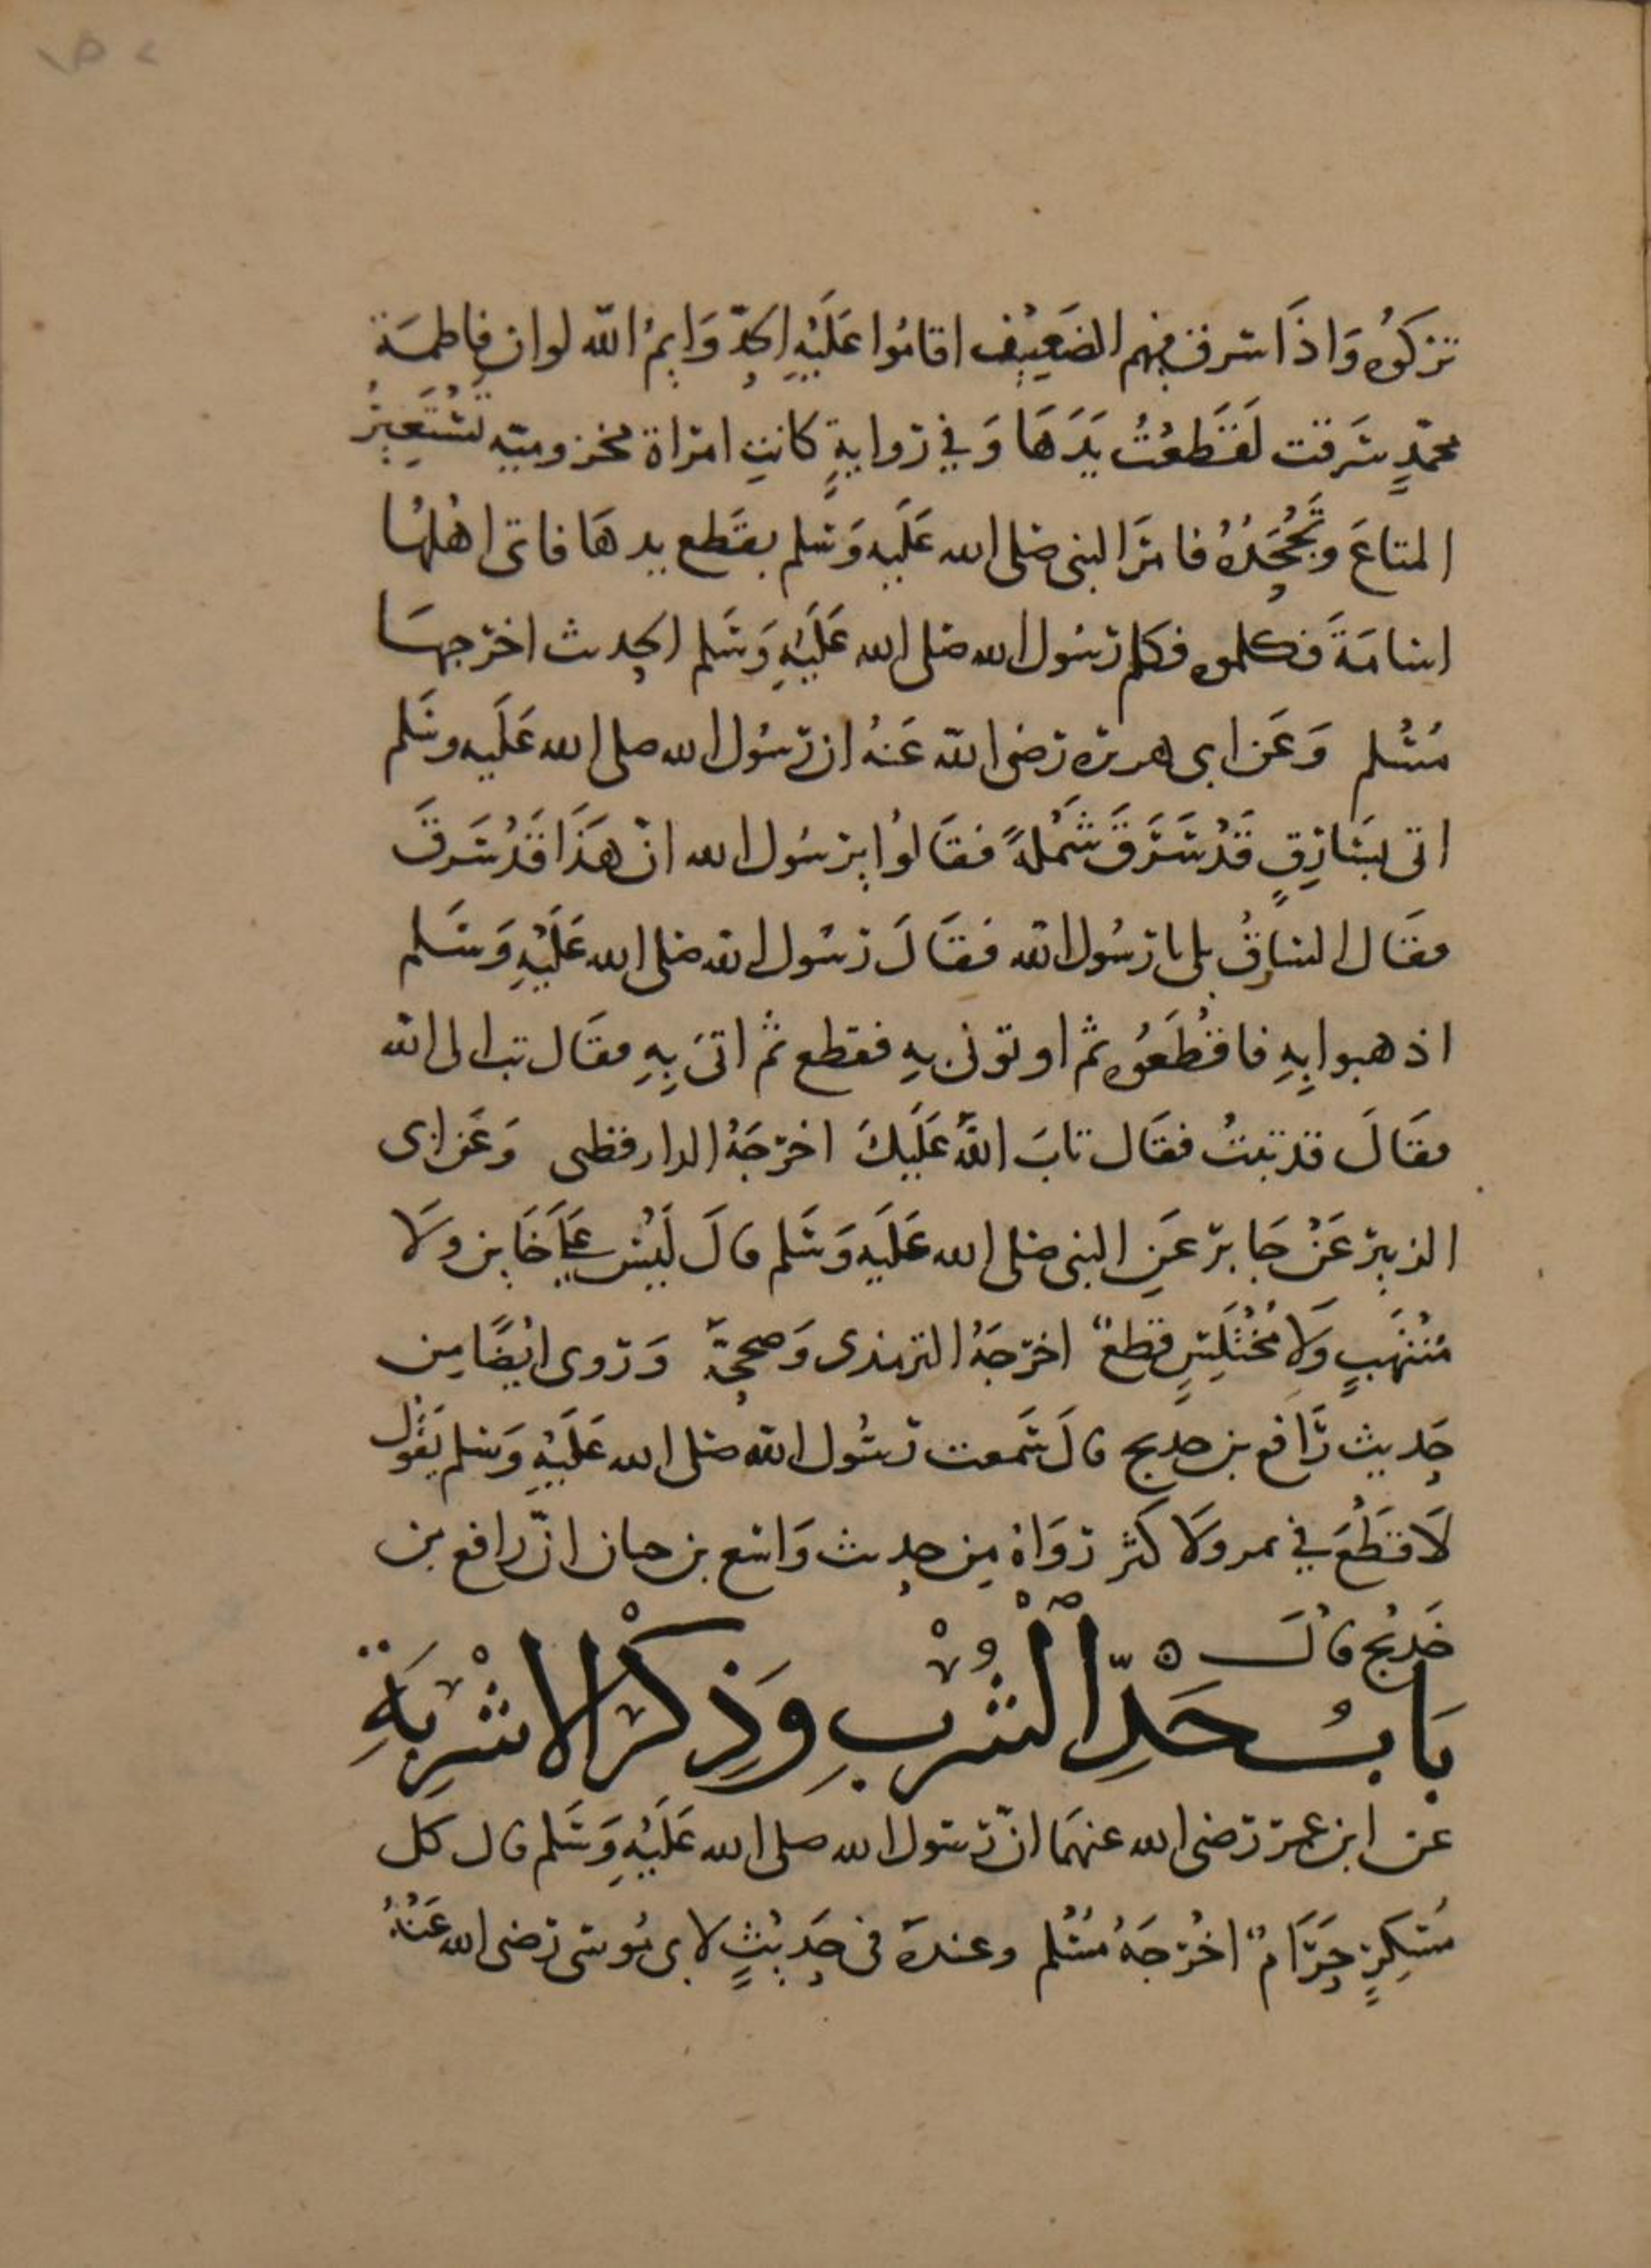 تركوه واذا سرق فيهم الضعيف اقاموا عليه الحد وايم الله لو ان فاطمة
محمد سرقت لقطعت يدها وفي رواية كانت امراة مخزومية تستعير
المتاع وتجحده فامر النبي صلى الله عليه وسلم بقطع يدها فاتى اهلها
اسامة فكلموه فكلم رسول الله صلى الله عليه وسلم الحديث اخرجها
مسلم وعن ابي هريرة رضي الله عنه ان رسول الله صلى الله عليه وسلم
اتى بسارق قد سرق شملة فقالوا يرسول الله ان هذا قد سرق
فقال السارق بلى يا رسول الله فقال رسول الله صلى الله عليه وسلم
اذهبوا به فاقطعوه ثم اوتوني به فقطع ثم اتى به فقال تب الى الله
فقال قد تبت فقال تاب الله عليك اخرجه الدارقطني وعن ابي
الزبير عن جابر عن النبي صلى الله عليه وسلم قال ليس على خاين ولا
منتهب ولا مختلس قطع اخرجه الترمذي وصححه وروى ايضا من
حديث رافع بن خديج قال سمعت رسول الله صلى الله عليه وسلم يقول
لا قطع في ثمر ولا كثر رواه من حديث واسع بن حبان ان رافع بن
خديج قال
باب حد الشرب وذكر الاشربة
عن ابن عمر رضي الله عنهما ان رسول الله صلى الله عليه وسلم قال كل
مسكر حرام اخرجه مسلم وعنده في حديث لابي موسى رضي الله عنه